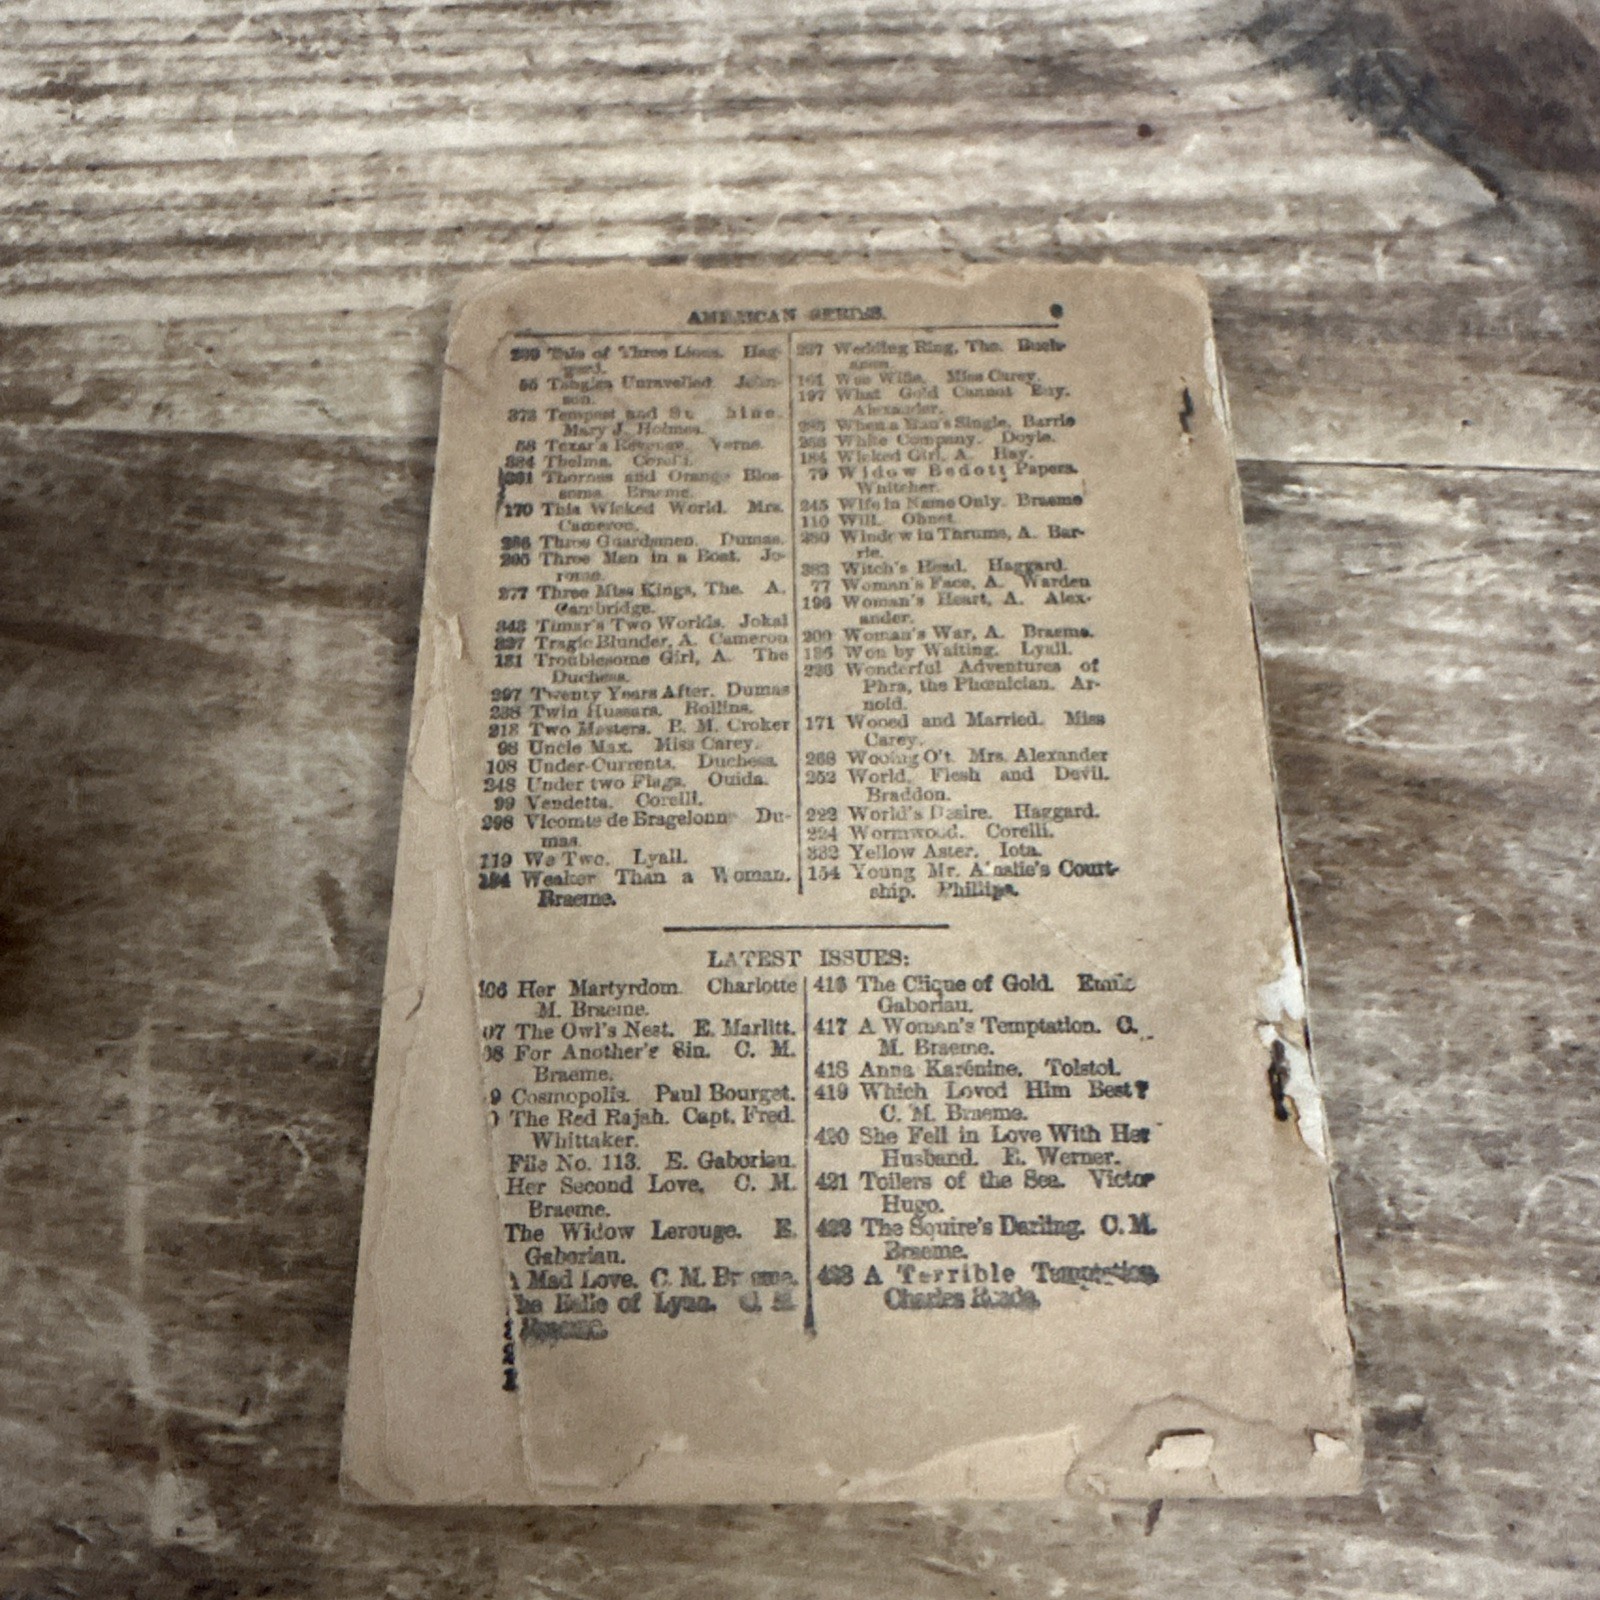 AMERICAN SERIES.
Tale of Three Lions. Hag-
gard.
55 Tangles Unravelled. John-
son.
373 Tempest and
Mary J. Holmes.
58 Texar's Revenge. Verne.
334 Thelma. Corelli.
Thornes and Orange Blos-
soms. Braeme.
170 This Wicked World. Mrs.
Cameron.
Three Guardsmen. Dumas.
295 Three Men in a Boat. Je-
rome.
277 Three Miss Kings, The. A.
Cambridge.
343 Timar's Two Worlds. Jokai
327 Tragic Blunder, A. Cameron
131 Troublesome Girl, A. The
Duchess.
297 Twenty Years After. Dumas
238 Twin Hussars. Rollins.
218 Two Masters. B. M. Croker
98 Uncle Max. Miss Carey.
108 Under-Currents. Duchess.
248 Under two Flags. Ouida.
99 Vendetta. Corelli.
298 Vicomte de Bragelonn Du-
mas.
119 We Two. Lyall.
Weaker Than a Woman.
Braeme.
Wedding Ring, The. Buch-
anan.
161 Wee Wifie. Miss Carey.
197 What Gold Cannot Buy.
Alexander.
When a Man's Single. Barrie
White Company. Doyle.
184 Wicked Girl, A. Hay.
79 Widow Bedott Papers.
Whitcher.
245 Wife in Name Only. Braeme
110 Will. Ohnet.
280 Window in Thrums, A. Bar-
rie.
383 Witch's Head. Haggard.
77 Woman's Face, A. Warden
196 Woman's Heart, A. Alex-
ander.
209 Woman's War, A. Braeme.
Won by Waiting. Lyall.
236 Wonderful Adventures of
Phra, the Phœnician. Ar-
nold.
171 Wooed and Married. Miss
Carey.
268 Wooing O't. Mrs. Alexander
252 World, Flesh and Devil.
Braddon.
222 World's Desire. Haggard.
224 Wormwood. Corelli.
332 Yellow Aster. Iota.
154 Young Mr. Ainslie's Court-
ship. Phillips.
LATEST ISSUES:
406 Her Martyrdom. Charlotte
M. Braeme.
07 The Owl's Nest. E. Marlitt.
08 For Another's Sin. C. M.
Braeme.
9 Cosmopolis. Paul Bourget.
The Red Rajah. Capt. Fred.
Whittaker.
File No. 113. E. Gaboriau.
Her Second Love. C. M.
Braeme.
The Widow Lerouge. E.
Gaboriau.
A Mad Love. C. M. Braeme.
he Belle of Lynn. C. M.
Braeme.
416 The Clique of Gold. Emile
Gaboriau.
417 A Woman's Temptation. C.
M. Braeme.
418 Anna Karénine. Tolstoi.
419 Which Loved Him Best?
C. M. Braeme.
420 She Fell in Love With Her
Husband. E. Werner.
421 Toilers of the Sea. Victor
Hugo.
422 The Squire's Darling. C. M.
Braeme.
423 A Terrible Temptation.
Charles Reade.